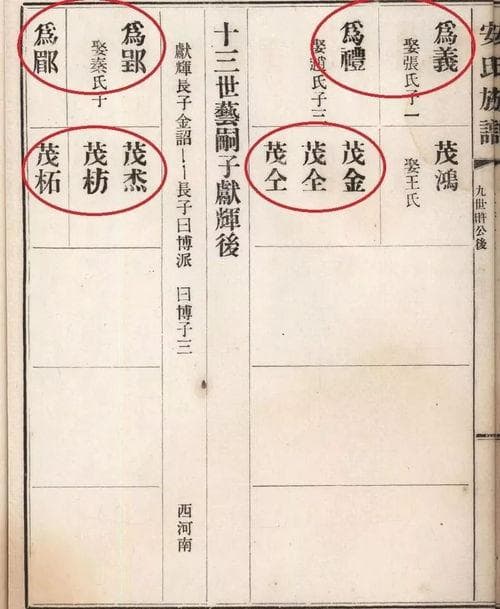 安氏族譜
九世
公後
爲義
娶張氏子一
爲禮
娶趙氏子三
茂鴻
娶王氏
茂金
茂全
茂仝
十三世藝嗣子獻輝後
獻輝長子金詔——長子曰博派 曰博子三 西河南
爲郢
娶秦氏子
爲郿
茂杰
茂枋
茂柘